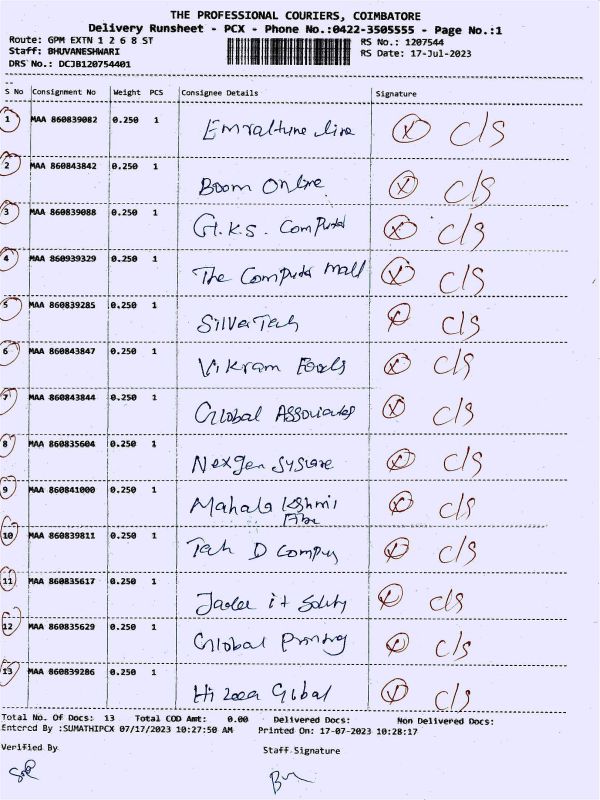 THE PROFESSIONAL COURIERS, COIMBATORE
Delivery Runsheet - PCX - Phone No.:0422-3505555 - Page No.:1
Route: GPM EXTN 1 2 6 8 ST RS No.: 1207544
Staff: BHUVANESHWARI RS Date: 17-Jul-2023
DRS No.: DCJB120754401
S No Consignment No Weight PCS Consignee Details Signature
1 MAA 860839082 0.250 1 c/s
2 MAA 860843842 0.250 1 Boom Online c/s
3 MAA 860839088 0.250 1 G.K.S. c/s
4 MAA 860939329 0.250 1 The Computer mall c/s
5 MAA 860839285 0.250 1 c/s
6 MAA 860843847 0.250 1 Vikram Foods c/s
7 MAA 860843844 0.250 1 Global Associates c/s
8 MAA 860835604 0.250 1 Nexgen c/s
9 MAA 860841000 0.250 1 Mahala Kshmi c/s
10 MAA 860839811 0.250 1 c/s
11 MAA 860835617 0.250 1 c/s
12 MAA 860835629 0.250 1 Global Printing c/s
13 MAA 860839286 0.250 1 Global c/s
Total No. Of Docs: 13 Total COD Amt: 0.00 Delivered Docs: Non Delivered Docs:
Entered By :SUMATHIPCX 07/17/2023 10:27:50 AM Printed On: 17-07-2023 10:28:17
Verified By Staff Signature